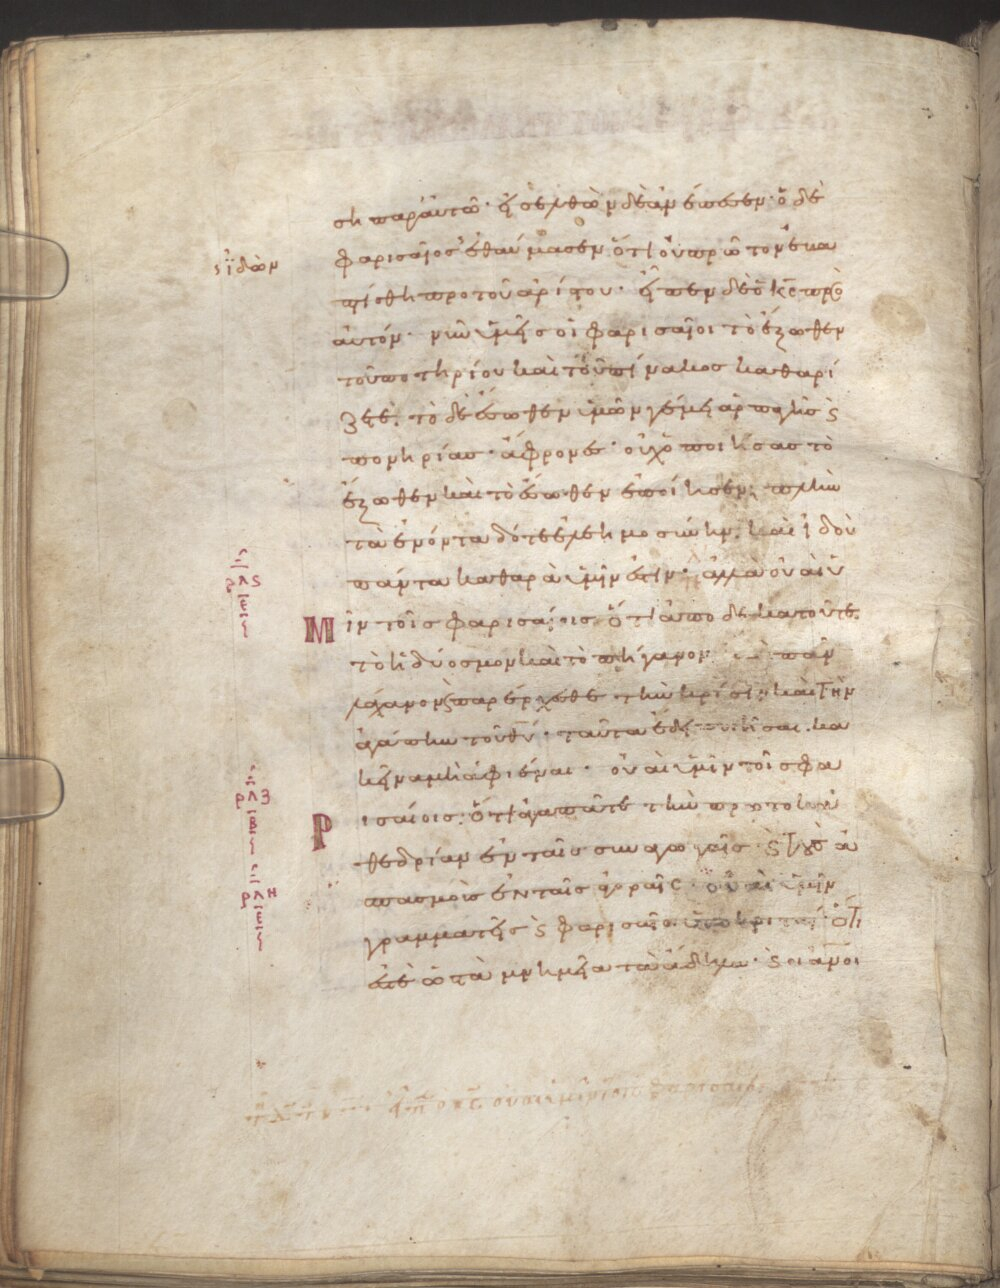 ση παρ' αυτῶ· εἰσελθὼν δὲ ἀνέπεσεν· ὁ δὲ
ς ἰδὼν
φαρισαῖος ἐθαύμασεν ὅτι οὐ πρῶτον ἐβα
πτίσθη πρὸ τοῦ ἀρίστου· εἶπεν δὲ ὁ κς πρὸς
ἀυτόν· νῦν ὑμεῖς οἱ φαρισαῖοι τὸ ἔξωθεν
τοῦ ποτηρίου καὶ τοῦ πίνακος καθαρί
ζετε. τὸ δὲ ἔσωθεν ὑμῶν γέμει ἁρπαγῆς ς
πονηρίας· ἄφρονες· οὐχ ὁ ποιήσας τὸ
ἔξωθεν καὶ τὸ ἔσωθεν ἐποίησεν; πλὴν
τὰ ἐνόντα δότε ἐλεημοσύνην. καὶ ἰδοὺ
πάντα καθαρὰ ὑμῖν ἐστιν· ἀλλὰ οὐαὶ ὑ
Μ ῖν τοῖς φαρισαίοις ὅτι ἀποδεκατοῦτε
τὸ ἡδύοσμον καὶ τὸ πήγανον πᾶν
λάχανον ς παρέρχεσθε τὴν κρίσιν καὶ τὴν
ἀγάπην τοῦ θυ· ταῦτα ἔδει ποιῆσαι. κα
κεῖνα μὴ ἀφιέναι· οὐαὶ ὑμῖν τοῖς φα
Ρ ισαίοις. ὅτι ἀγαπᾶτε τὴν πρωτοκα
θεδρίαν ἐν ταῖς συναγωγαῖς ς τοὺς ἀ
σπασμοὺς ἐν ταῖς ἀγοραῖς· οὐαὶ ὑμῖν
γραμματεῖς ς φαρισαῖοι ὑποκριταί ὅτι
ἐστὲ ὡς τὰ μνημεῖα τὰ ἄδηλα· ς οἱ ανοι
εἶπ ὁ κς. οὐαὶ ὑμῖν τοῖς φαρισαίοις